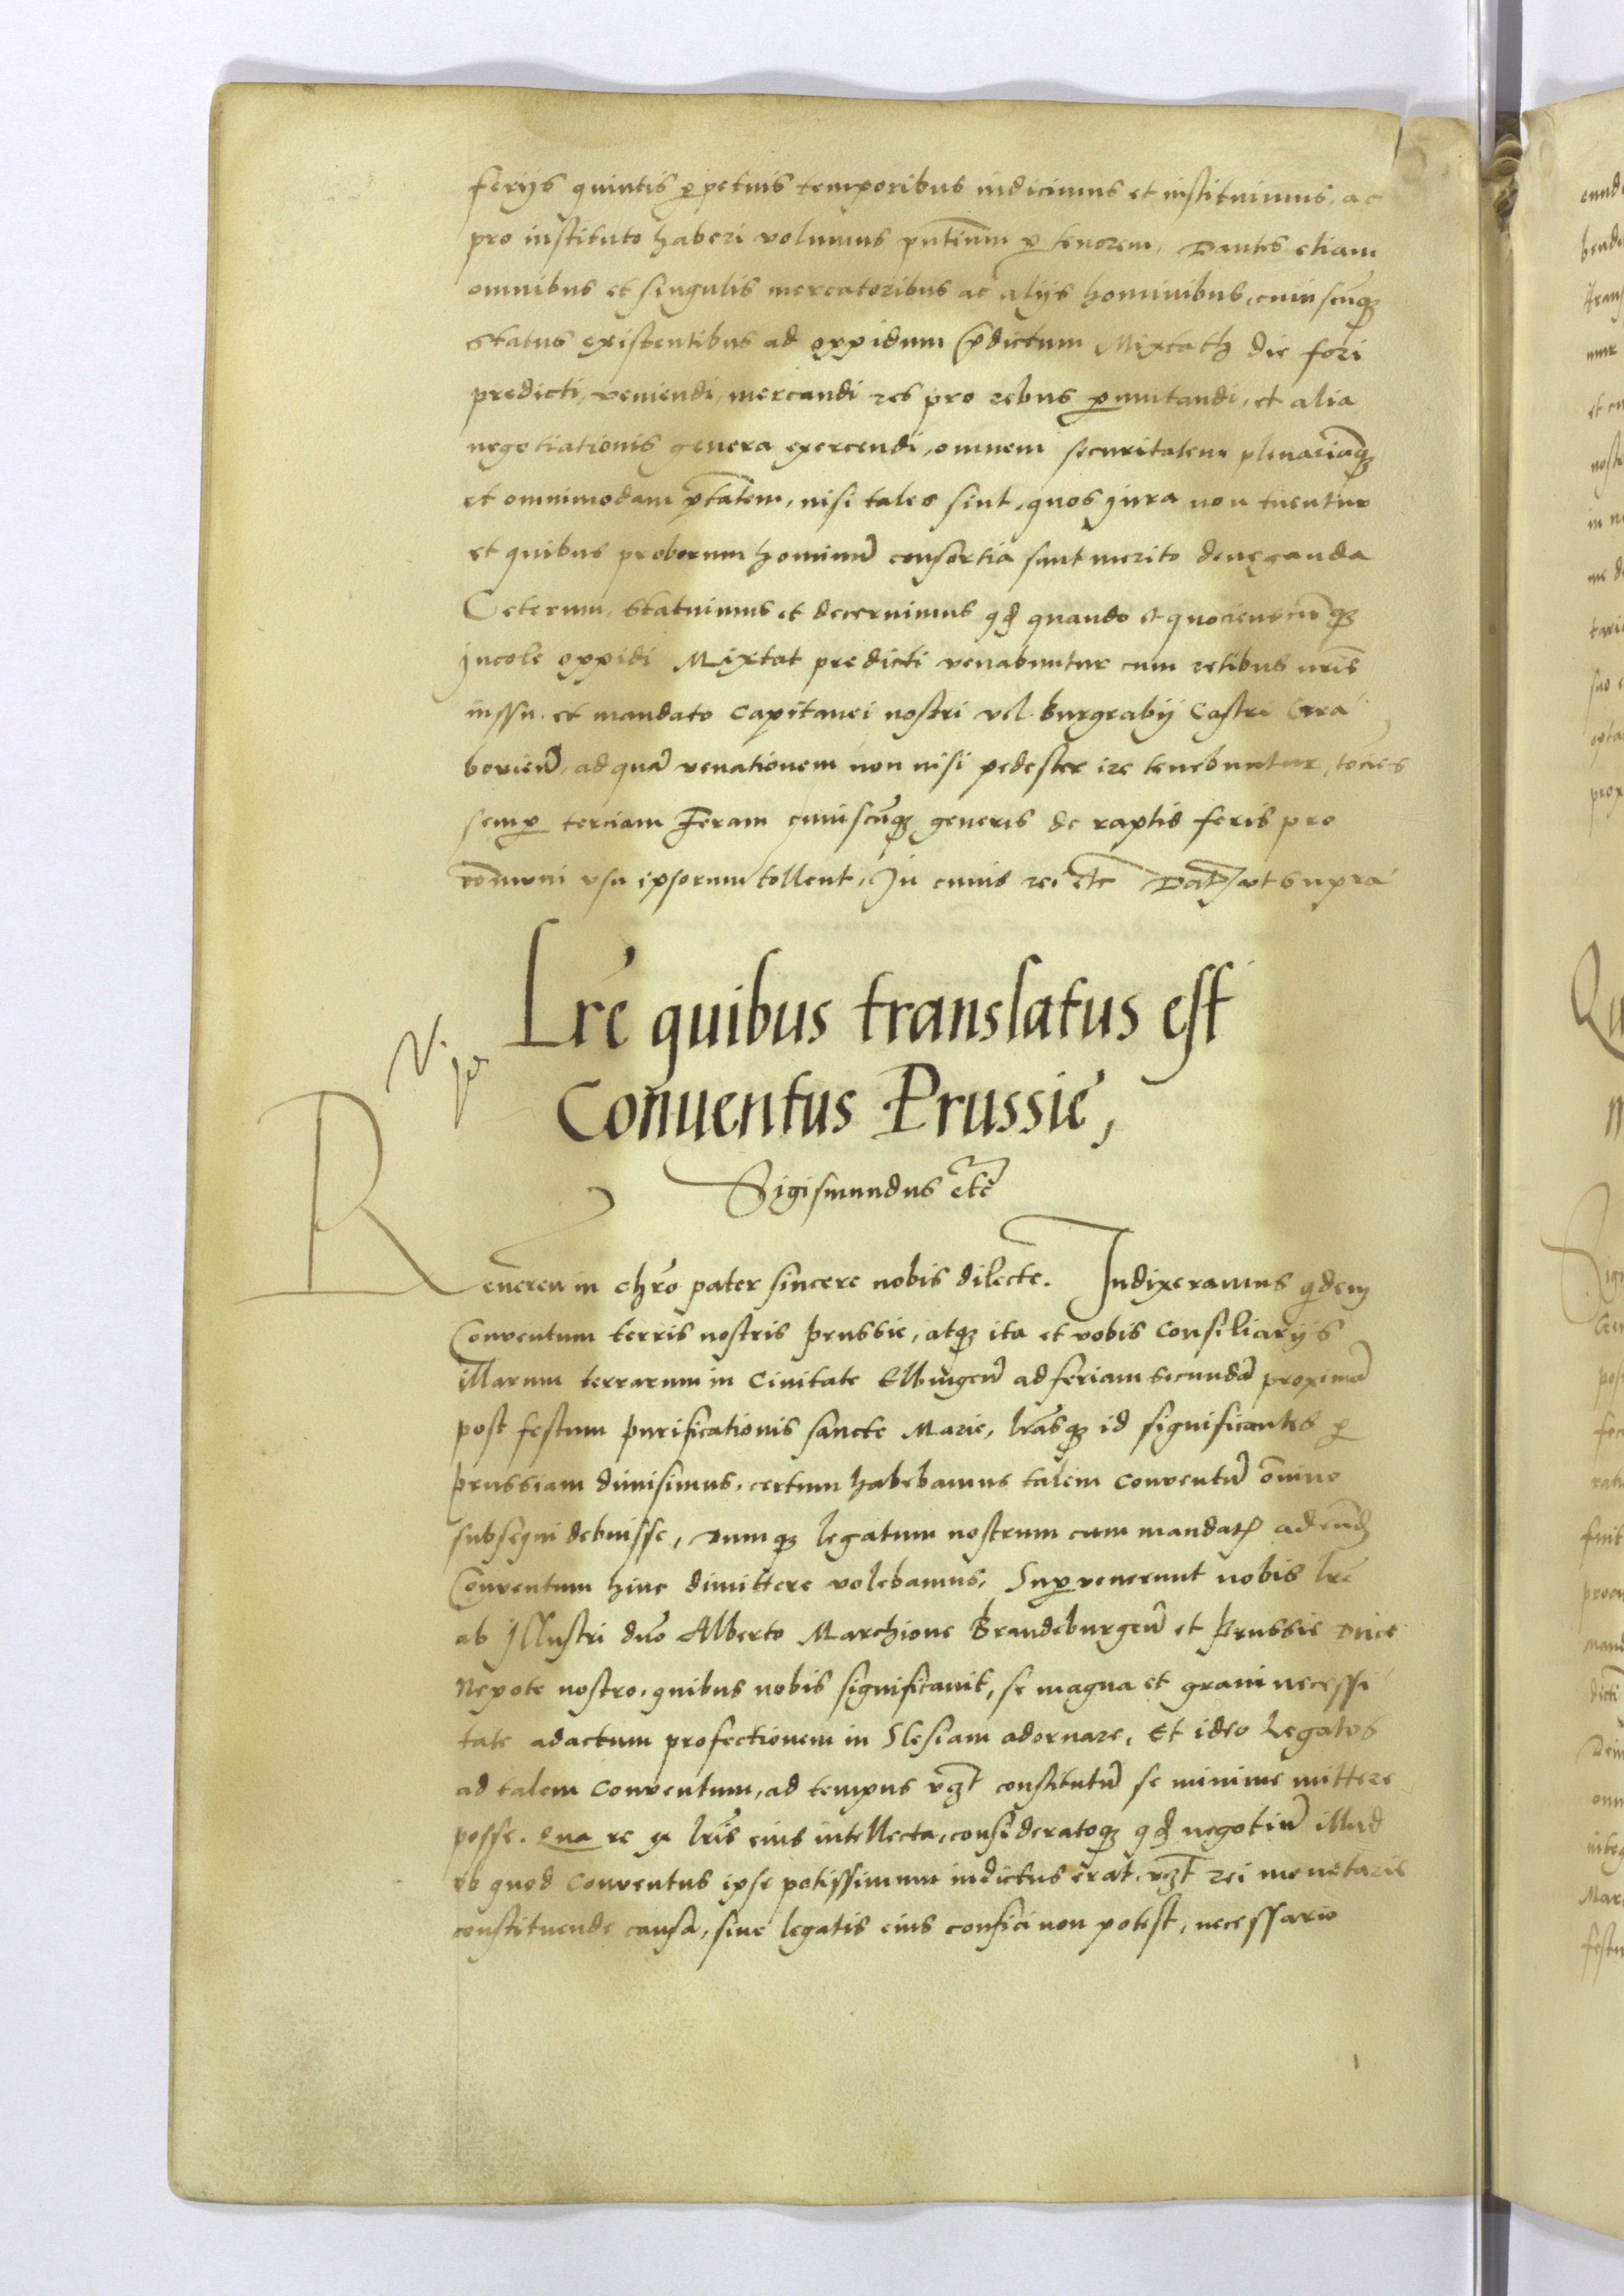 ferijs quintis ꝑpetuis temporibus indicimus et instituimus, ac
pro instituto haberi volumus pn̄tium ꝑ tenorem, Dantes etiam
omnibus et singulis mercatoribus ac alijs hominibus, cuiuscūqꝫ
status existentibus ad oppidum p̄dictum Mixtath die fori
predicti, veniendi, mercandi res pro rebus ꝑmutandi, et alia
negotiationis genera exercendi, omnem securitatem plenariāqꝫ
et omnimodam p̄tatem, nisi tales sint, quos jura non tuentur
et quibus proborum hominū consortia sunt merito deneganda
Ceterum, Statuimus et decernimus qđ quando et quocienscūqꝫ
jncole oppidi Mixtat predicti venabuntur cum retibus nr̄is
iussu et mandato Capitanei nostri vel Burgrabij Castri Gra
bovieñ, ad quā venationem non nisi pedester ire tenebuntur, tocies
semꝑ terciam Feram cuiuscūqꝫ generis de raptis feris pro
cōmuni vsu ipsorum tollent, In cuius rei etc̄ Dat̄ vt supra
Lrē quibus translatus est
Conuentus Prussie,
Sigismundus etc̄
Reueren in chr̄o pater sincere nobis dilecte. Indixeramus qdem
Conventum terris nostris Prussie, atqꝫ ita et vobis Consiliarijs
illarum terrarum in Ciuitate Elbingeñ ad feriam secundā proximā
post festum Purificationis sancte Marie, lr̄asqꝫ id significantes ꝑ
Prussiam dimisimus, certum habebamus talem conventū om̄ino
subsequi debuisse, Dumqꝫ legatum nostrum cum mandat̄ ad eund̄
Conventum hinc dimittere volebamus, Suꝑvenerunt nobis lrē
ab Jllustri dn̄o Alberto Marchione Brandeburgeñ et Prussie Duce
Nepote nostro, quibus nobis significauit, se magna et graui necessi
tate adactum profectionem in Slesiam adornare, Et ideo Legatos
ad talem Conventum, ad tempus vꝫt constitutū se minime mittere
posse. Qua re ex lr̄is eius intellecta, consideratoqꝫ qđ negotiū illud
ob quod Conventus ipse potissimum indictus erat, vꝫt rei monetarie
constituende causa, sine legatis eius confici non potest, necessario